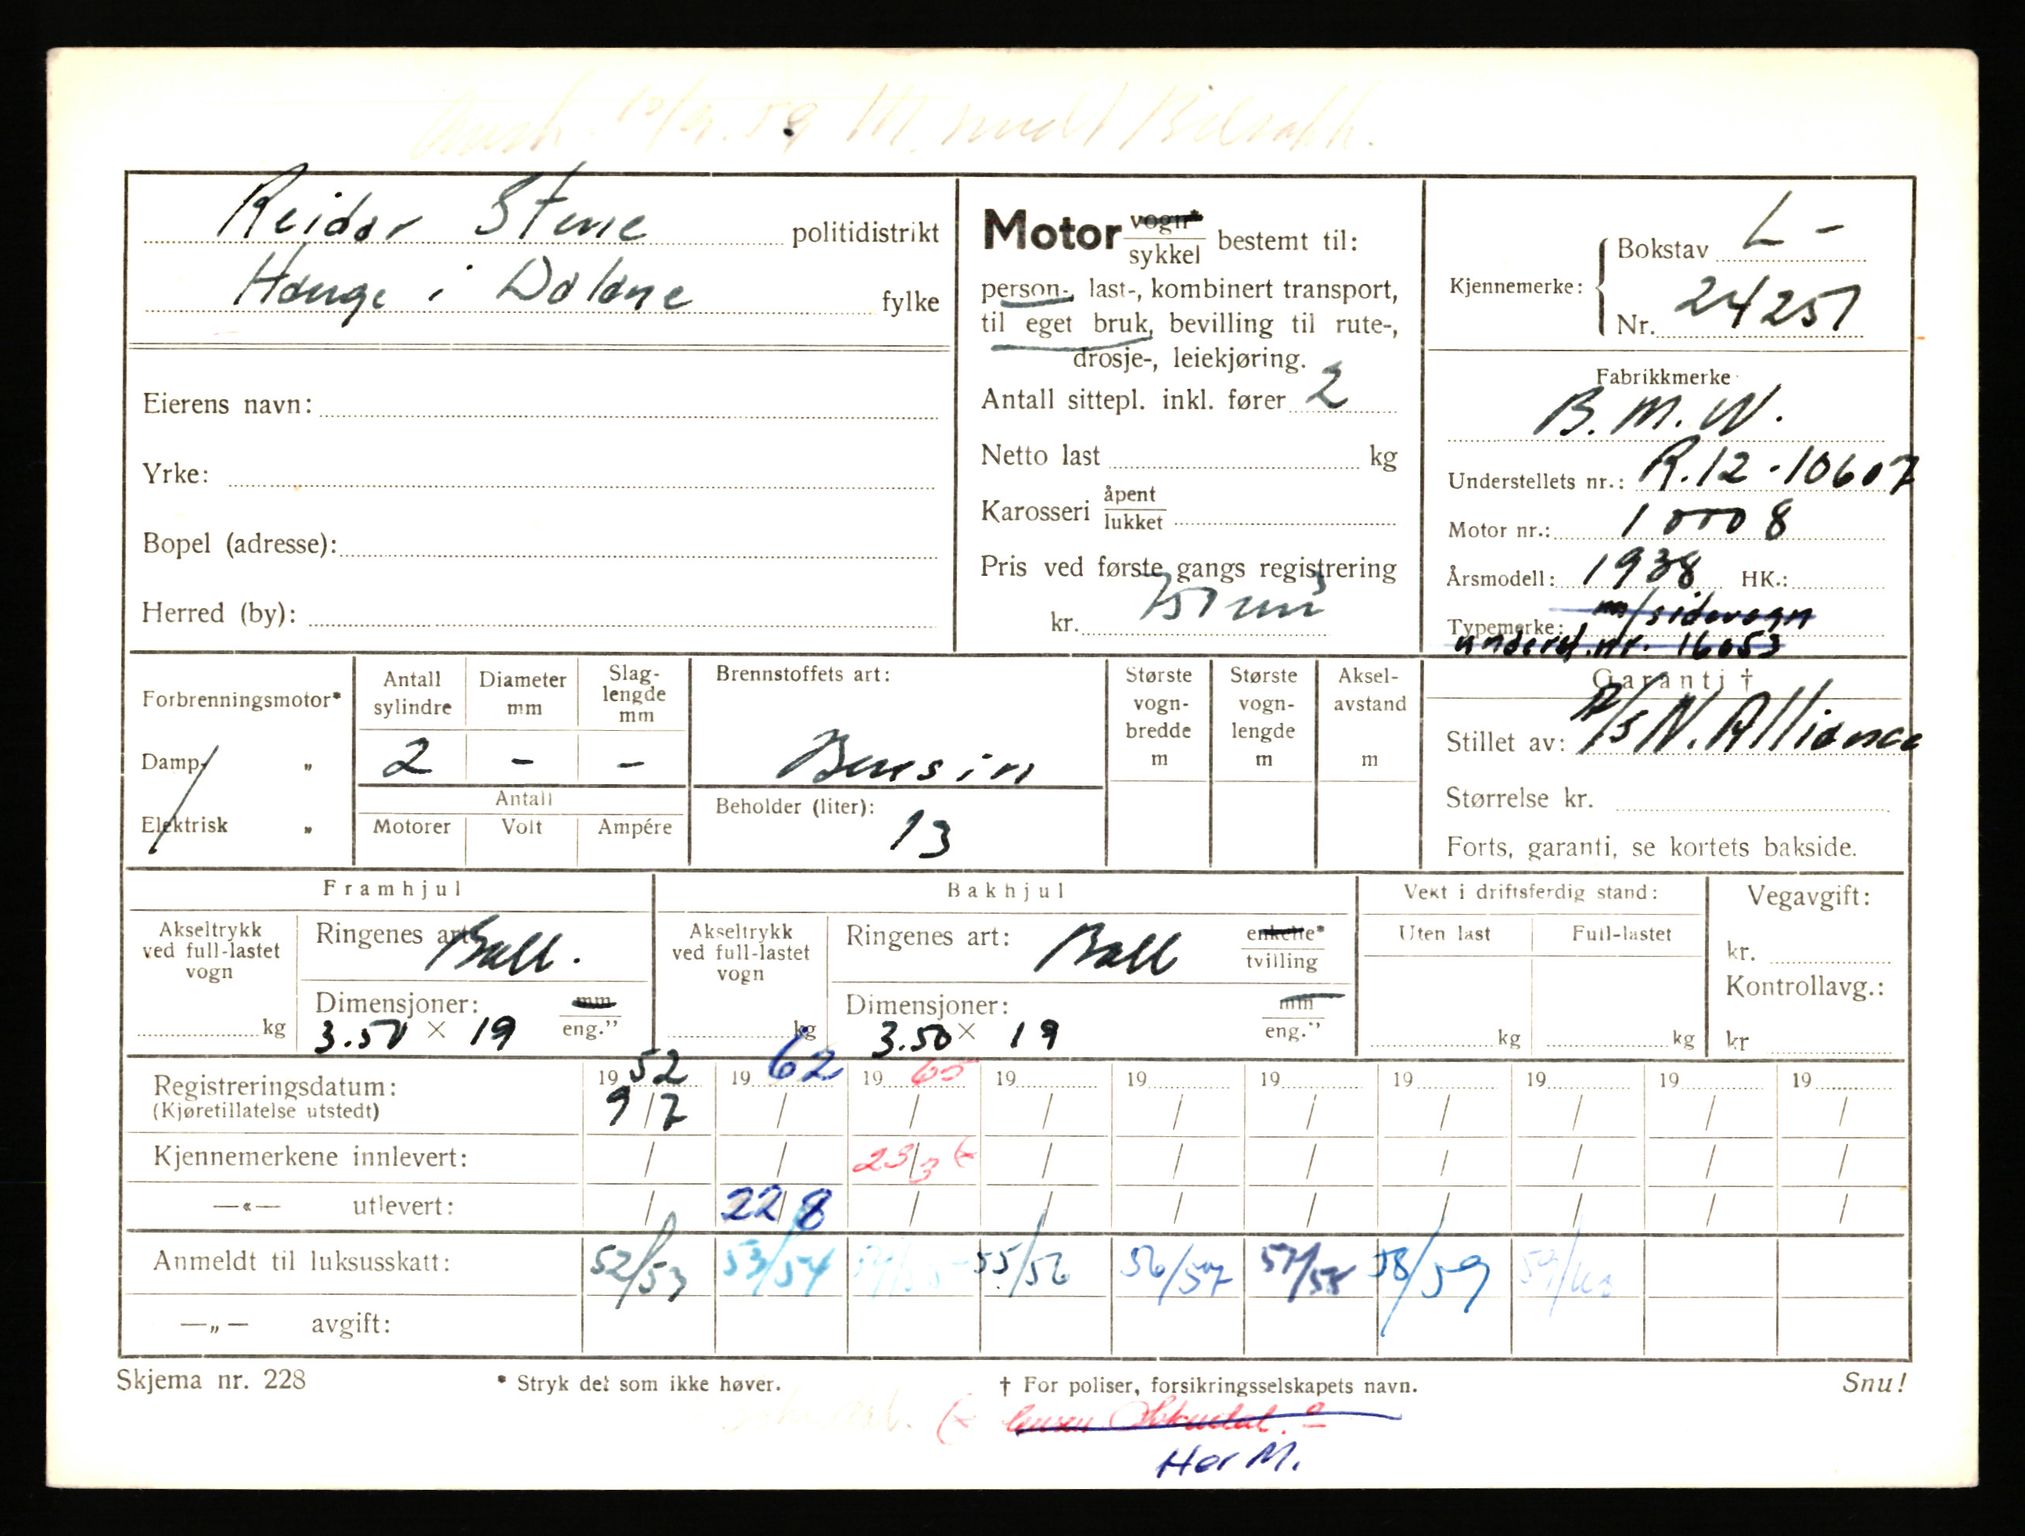 10/9.59 M.
Reidar Stene politidistrikt
Hauge i Dalane fylke
Eierens navn:
Yrke:
Bopel (adresse):
Herred (by):
Motor vogn*/sykkel bestemt til:
person-, last-, kombinert transport,
til eget bruk, bevilling til rute-,
drosje-, leiekjøring.
Antall sittepl. inkl. fører 2
Netto last kg
Karosseri åpent/lukket
Pris ved første gangs registrering
kr.
Kjennemerke: Bokstav L-
Nr. 24251
Fabrikkmerke
B.M.W.
Understellets nr.: R.12-10607
Motor nr.: 10008
Årsmodell: 1938 HK.:
Typemerke: m/sidevogn
underst. nr. 16053
Forbrenningsmotor*
Damp- „
Elektrisk „
Antall sylindre 2
Diameter mm -
Slag-lengde mm -
Antall
Motorer Volt Ampére
Brennstoffets art:
Bensin
Beholder (liter):
13
Største vogn-bredde m
Største vogn-lengde m
Aksel-avstand m
Garanti †
Stillet av: A/S N. Alliance
Størrelse kr.
Forts, garanti, se kortets bakside.
Framhjul
Akseltrykk ved full-lastet vogn kg
Ringenes art: Ball.
Dimensjoner: mm/eng."
3.50 × 19
Bakhjul
Akseltrykk ved full-lastet vogn kg
Ringenes art: Ball enkelte*/tvilling
Dimensjoner: mm/eng."
3.50 × 19
Vekt i driftsferdig stand:
Uten last Full-lastet
kg kg
Vegavgift:
kr.
Kontrollavg.:
kr
Registreringsdatum: 1952 1962 1965 19 19 19 19 19 19 19
(Kjøretillatelse utstedt) 9/7 / / / / / / / / /
Kjennemerkene innlevert: / / 23/3 (x / / / / / / /
—«— utlevert: / 22/8 / / / / / / / /
Anmeldt til luksusskatt: 52/53 53/54 54/55 55/56 56/57 57/58 58/59 59/60
—„— avgift:
Skjema nr. 228 * Stryk det som ikke høver. † For poliser, forsikringsselskapets navn. Snu!
(x
Her M.